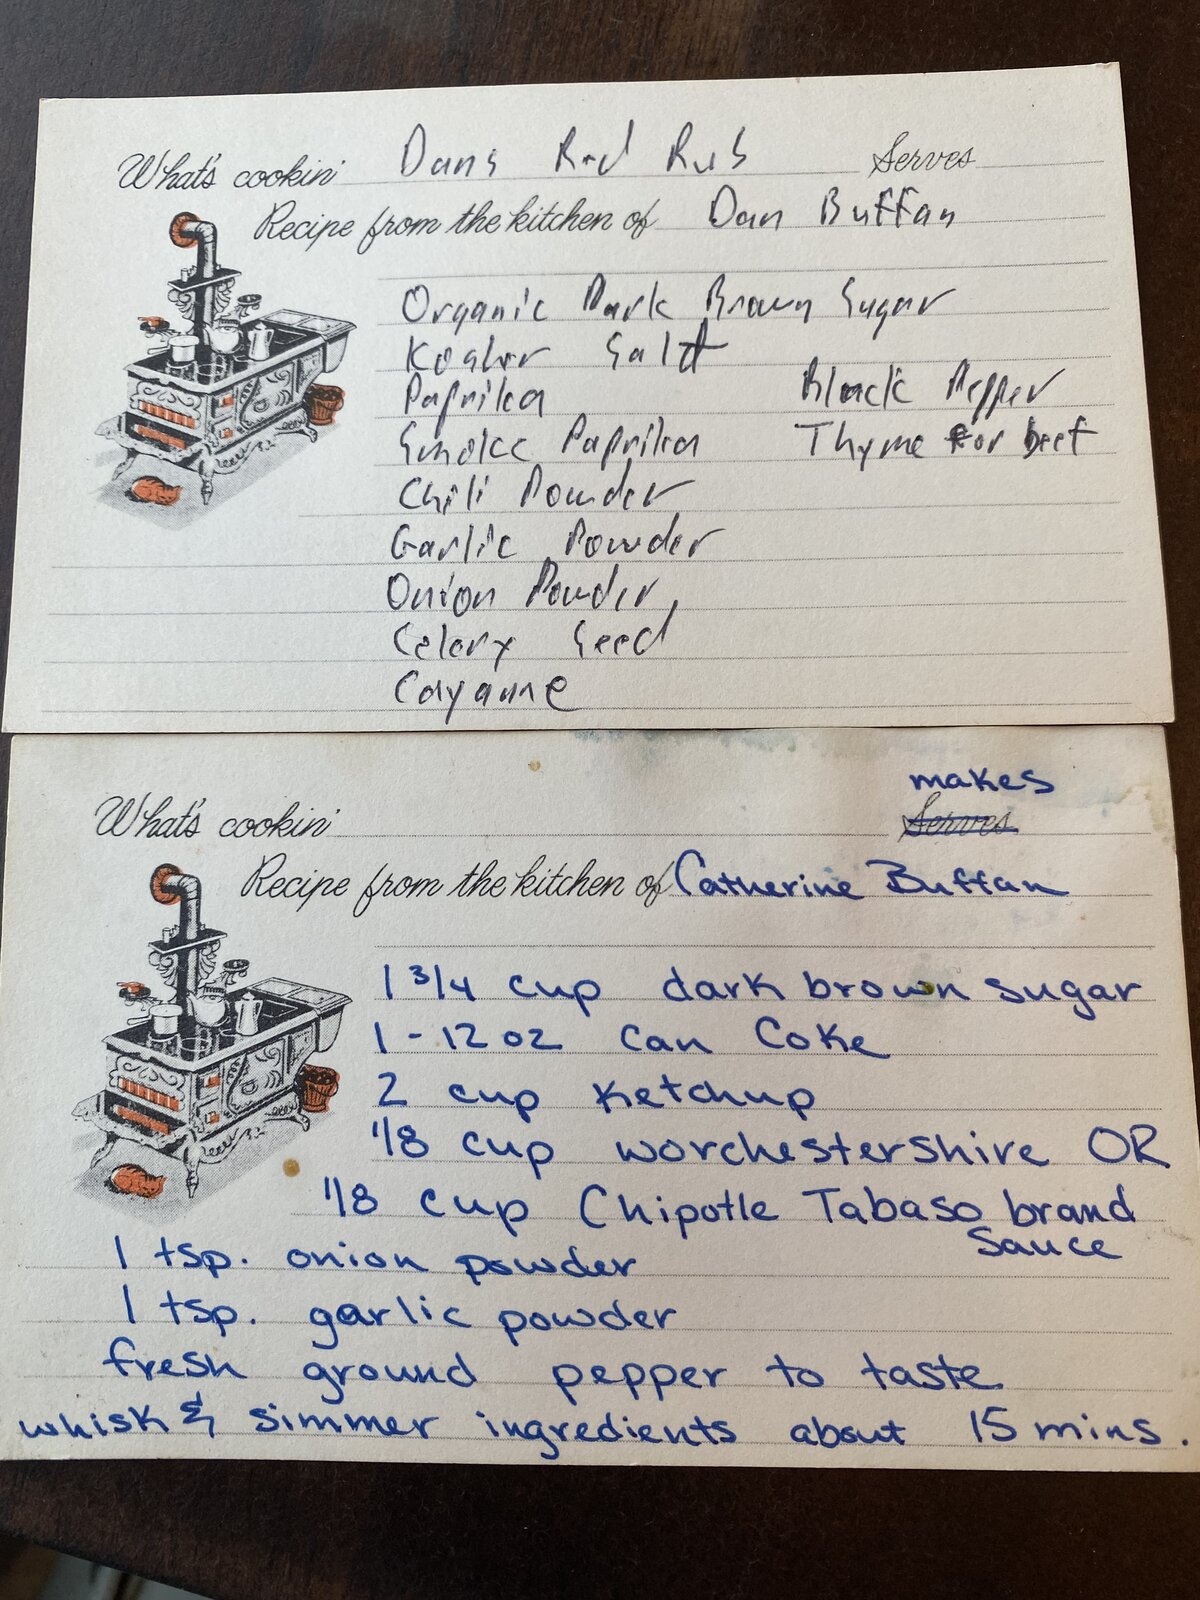 What's cookin' Dans Red Rub Serves
Recipe from the kitchen of Dan Buffan
Organic Dark Brown Sugar
Kosher Salt
Paprika Black Pepper
Smoke Paprika Thyme for beef
Chili Powder
Garlic Powder
Onion Powder
Celery Seed
Cayanne
makes
What's cookin' Serves
Recipe from the kitchen of Catherine Buffan
1 3/4 cup dark brown sugar
1 - 12 oz can Coke
2 cup ketchup
1/8 cup worchestershire OR
1/8 cup Chipotle Tabaso brand
Sauce
1 tsp. onion powder
1 tsp. garlic powder
fresh ground pepper to taste
whisk & simmer ingredients about 15 mins.